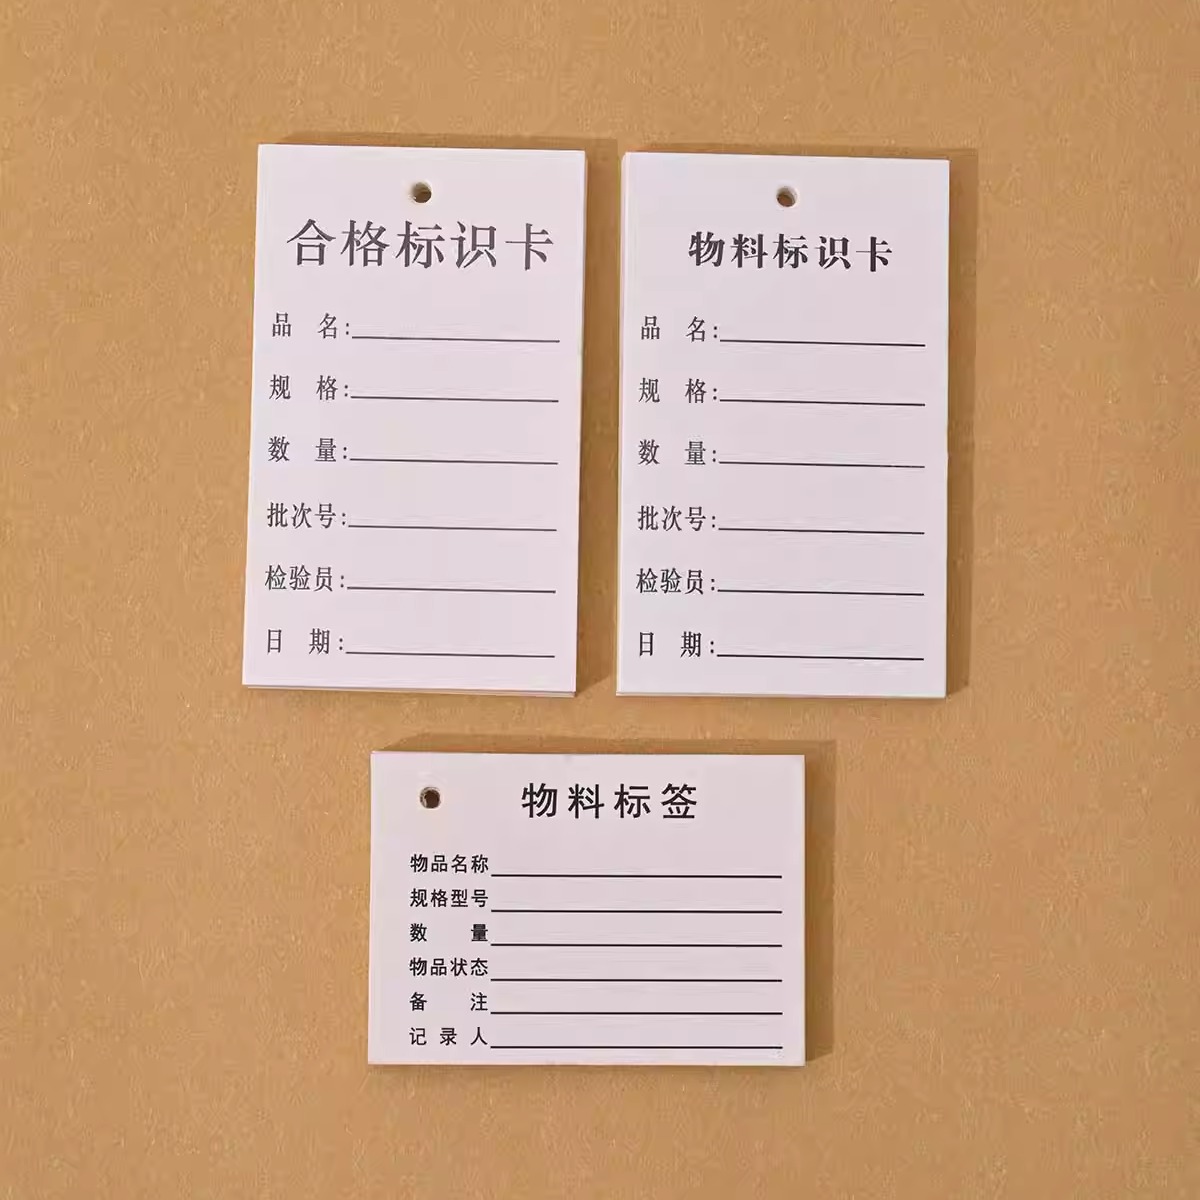 合格标识卡
品 名:
规 格:
数 量:
批次号:
检验员:
日 期:
物料标识卡
品 名:
规 格:
数 量:
批次号:
检验员:
日 期:
物料标签
物品名称
规格型号
数 量
物品状态
备 注
记 录 人